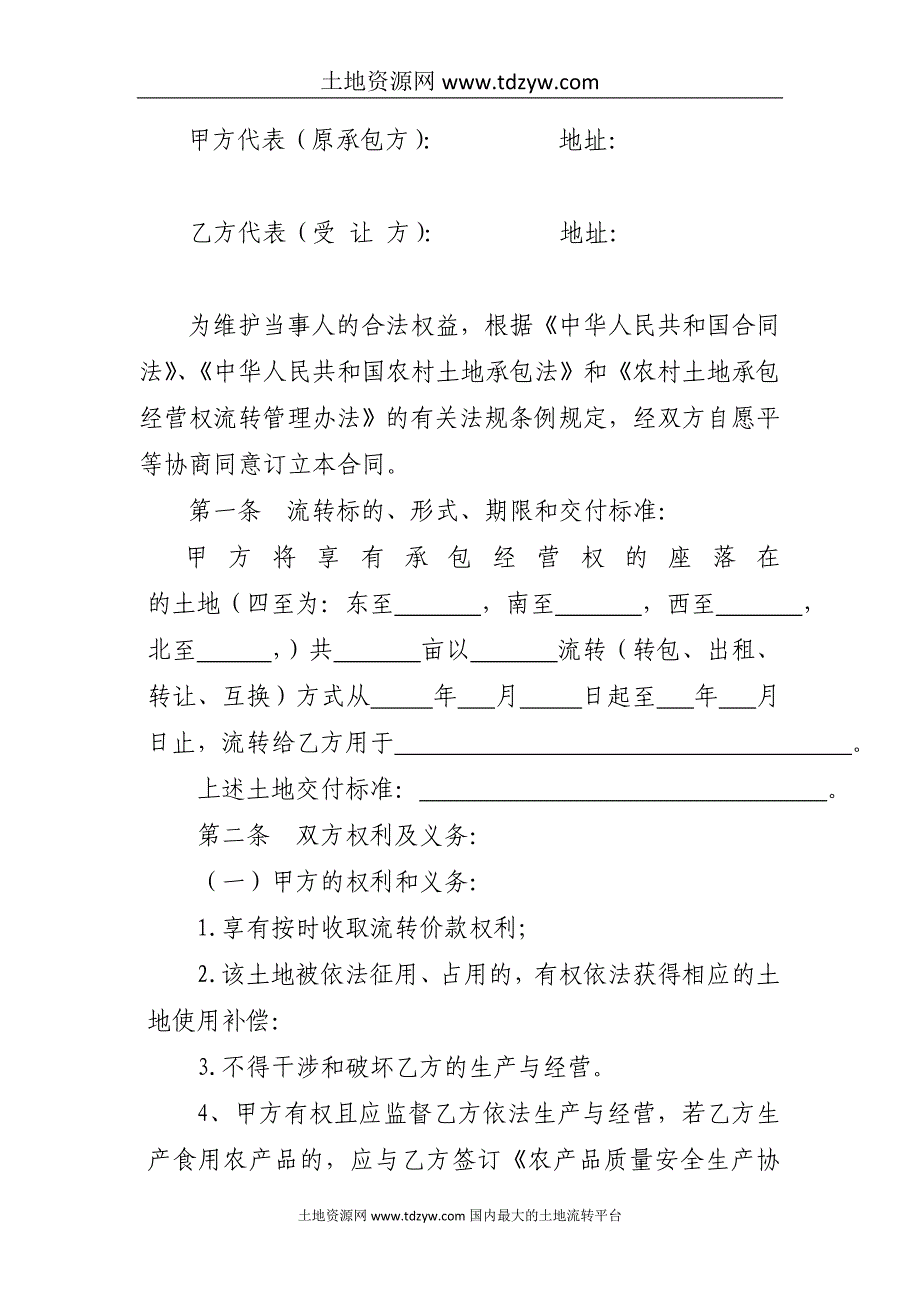 土地资源网 www.tdzyw.com
甲方代表（原承包方）： 地址：
乙方代表（受 让 方）： 地址：
为维护当事人的合法权益，根据《中华人民共和国合同
法》、《中华人民共和国农村土地承包法》和《农村土地承包
经营权流转管理办法》的有关法规条例规定，经双方自愿平
等协商同意订立本合同。
第一条 流转标的、形式、期限和交付标准：
甲方将享有承包经营权的座落在
的土地（四至为：东至_______，南至_______，西至_______，
北至______，）共_______亩以_______流转（转包、出租、
转让、互换）方式从_____年___月_____日起至___年___月
日止，流转给乙方用于_____________________________________。
上述土地交付标准：_________________________________。
第二条 双方权利及义务：
（一）甲方的权利和义务：
1.享有按时收取流转价款权利；
2.该土地被依法征用、占用的，有权依法获得相应的土
地使用补偿：
3.不得干涉和破坏乙方的生产与经营。
4、甲方有权且应监督乙方依法生产与经营，若乙方生
产食用农产品的，应与乙方签订《农产品质量安全生产协
土地资源网 www.tdzyw.com 国内最大的土地流转平台